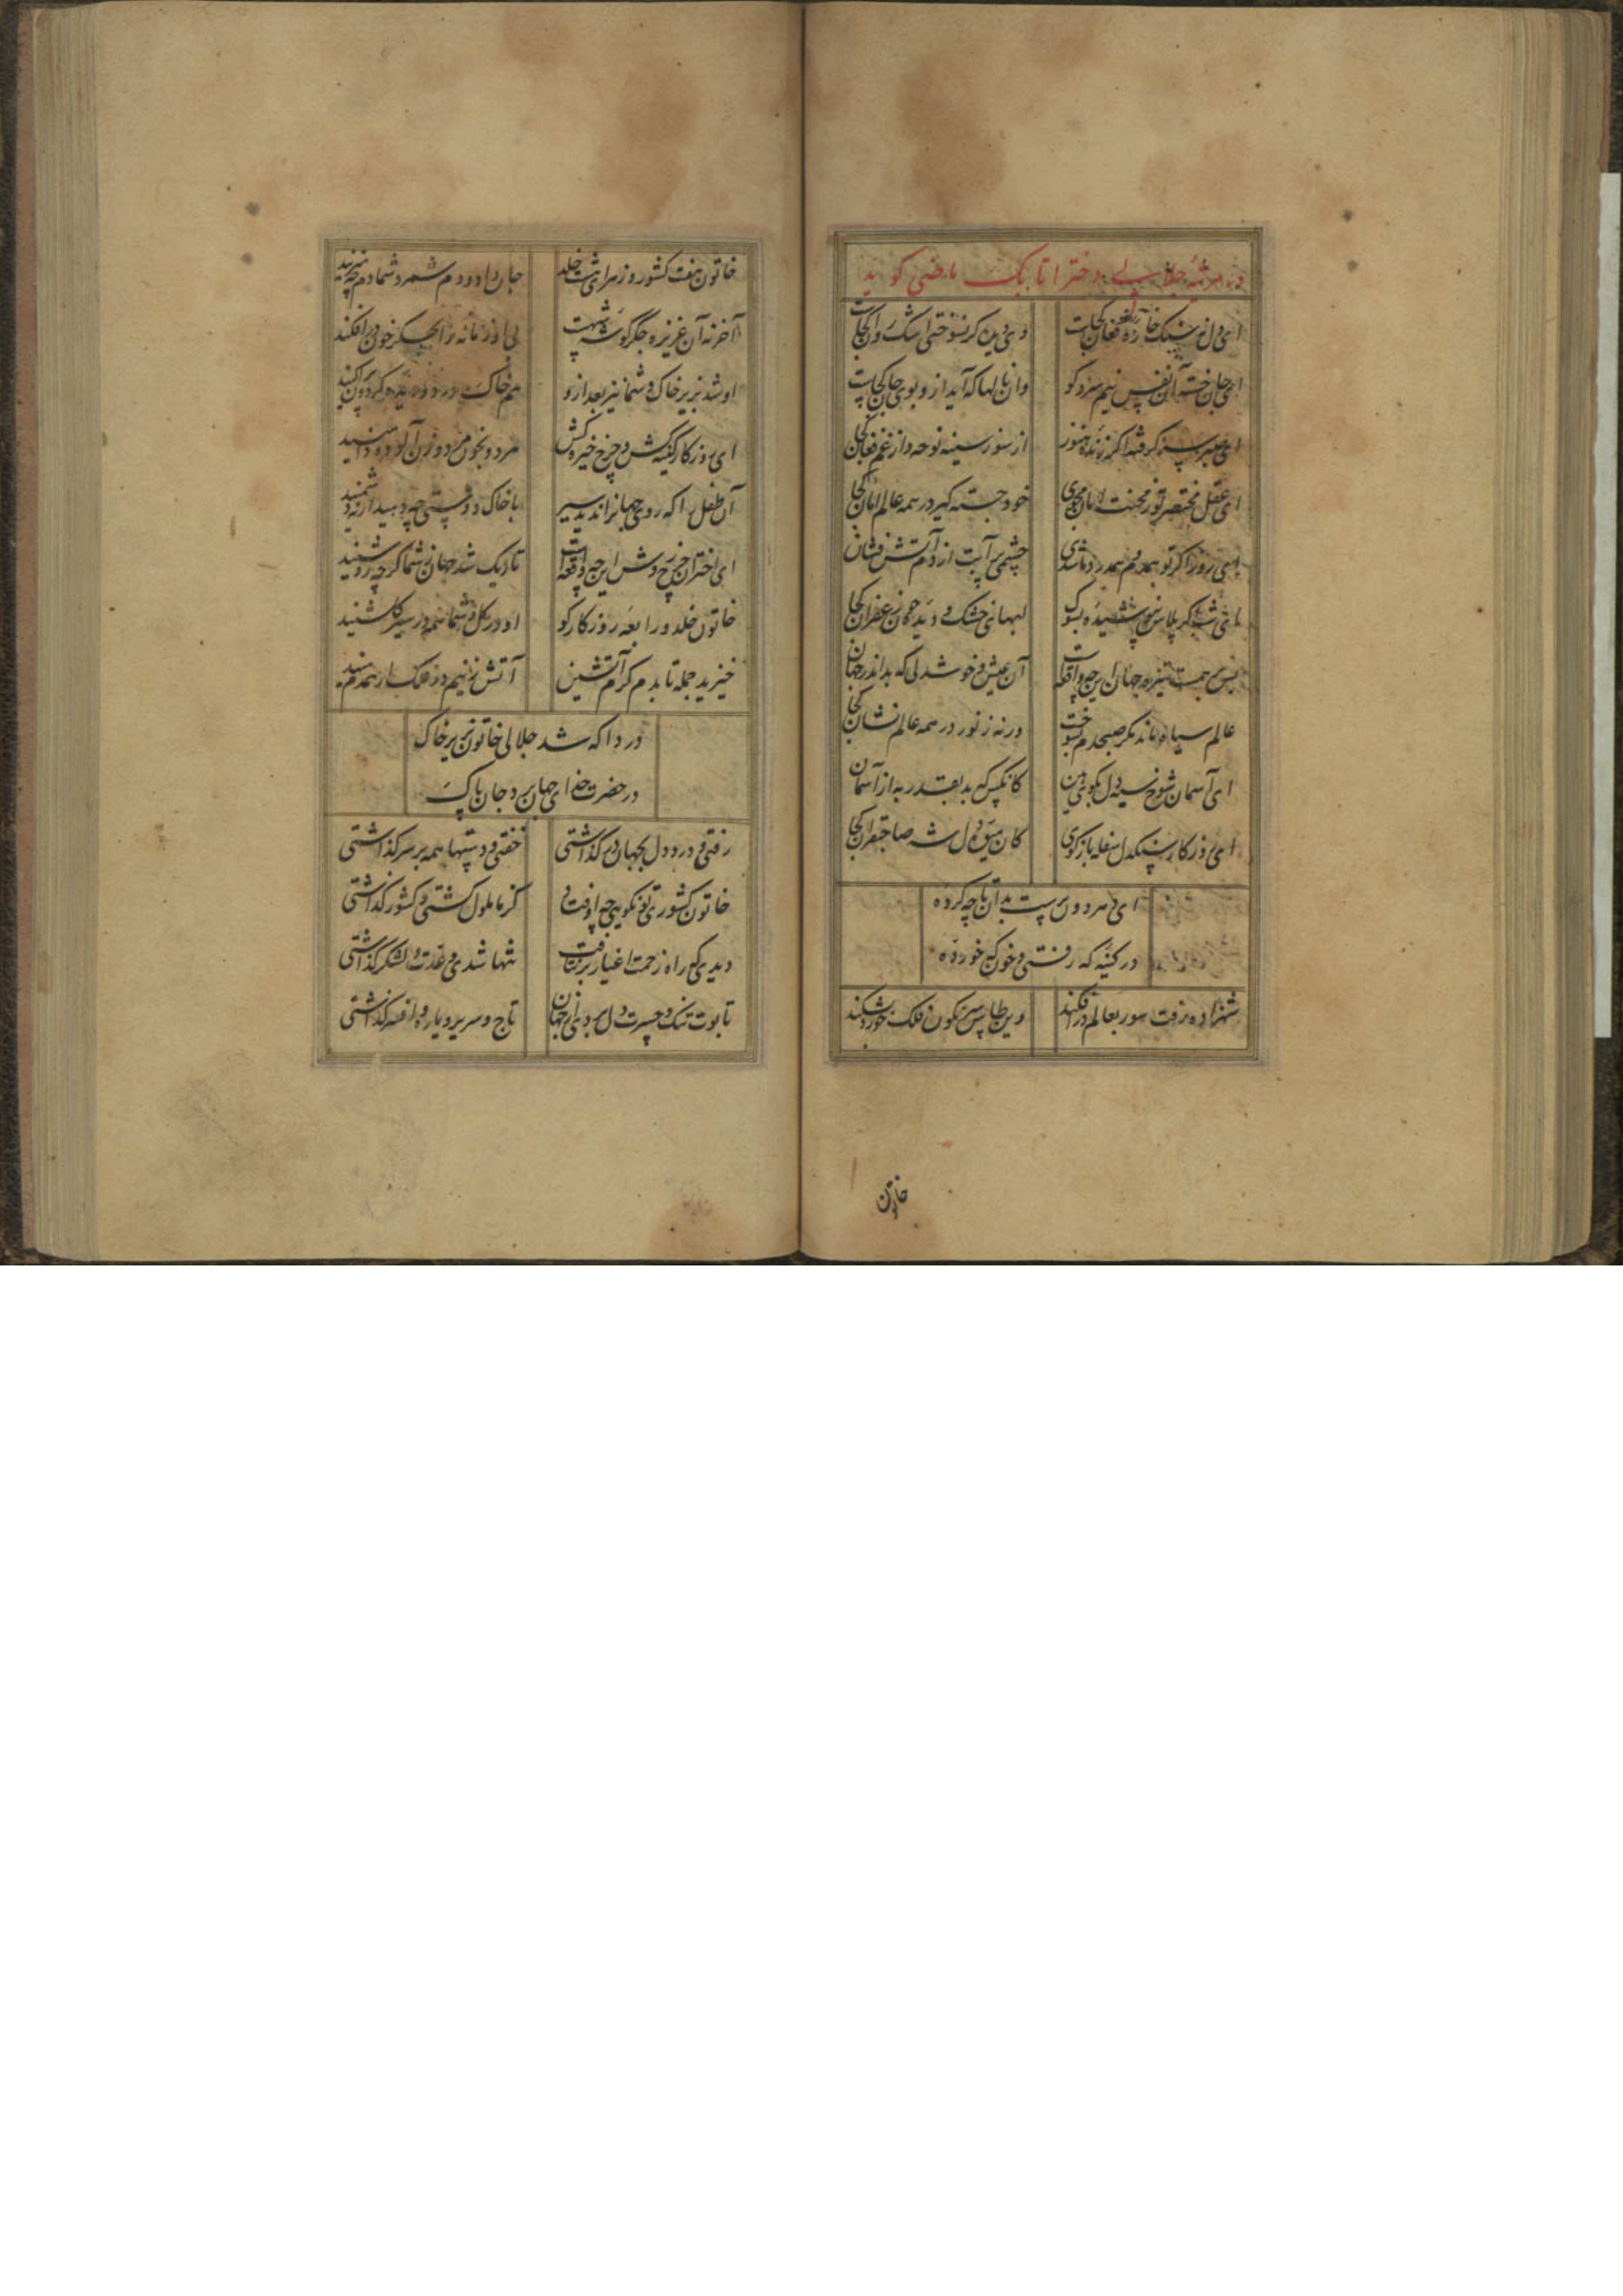 در مرثیه جلالی دختر اتابک ماضی گوید
ای دل نه سنک خاره فغان کجات
وی دیده کر نسوختی اشک روان کجات
ای جان خسته آن نفس نیم سرد کو
وان نالها که آید ازو بوی جان کجات
از سوز سینه نوحه و از غم فغان کجا
ای عقل مختصر تو ز محنت امان مجوی
خود جسته کیر در همه عالم امان کجا
ای روز اکر تو همدم و همدرد ما شدی
چشمی پر آبت از دم آتش فشان
لبهای خشک و دیده چون زعفران کجا
آن عیش و خوشدلی که بد اندر جهان کجا
عالم سیاه ماند مکر صبحدم بسوخت
ورنه ز نور در همه عالم نشان کجا
ای آسمان شوخ سیه دل بکوی هین
کانکس که بد بقدر به از آسمان کجا
ای روزکار سنکدل سفله باز کوی
کان میوه دل شه صاحبقران کجا
ای دهر دون پرست بدان تا چه کرده
در کینه که رفتی و خون که خورده
شهزاده رفت سور بعالم در افکنید
وین طاس سرنکون فلک خورد بشکنید
خاتون
خاتون هفت کشور و زهرای هشت خلد
جان داد و دم شمرد شما دم چه میزنید
آخر نه آن عزیزه جکر کوشه شهست
بی او زمانه را بجکر خون در افکنید
او شد بزیر خاک و شما نیز بعد ازو
هم خاک در دو دیده کردون پراکنید
ای روزکار کینه کش و چرخ خیره کش
مرد و بخون مرد و زن آلوده دامنید
آن طفل را که روی جهانرا ندید سیر
با خاک دوستی چه دهید ار نه دشمنید
ای اختران چرخ وش این چه واقعه است
تاریک شد جهان ز شما کرچه روشنید
خاتون خلد و رابعه روزکار کو
او در کل و شما همه در سیر کلشنید
خیزید جمله تا بدم کرم آتشین
آتش زنیم در فلک ار همدم منید
دردا که شد جلالی خاتون بزیر خاک
در حضرت خدای جهان برد جان پاک
رفتی و درد دل بجهان در کذاشتی
خفتی و دستها همه بر سر کذاشتی
خاتون کشوری تو نکویی چه اوفتاد
کز ما ملول کشتی و کشور کذاشتی
دیدی که راه زحمت اغیار برنتافت
تنها شدی و عدت و لشکر کذاشتی
تابوت تنک و حسرت دل بردی از جهان
تاج و سریر و یاره و افسر کذاشتی